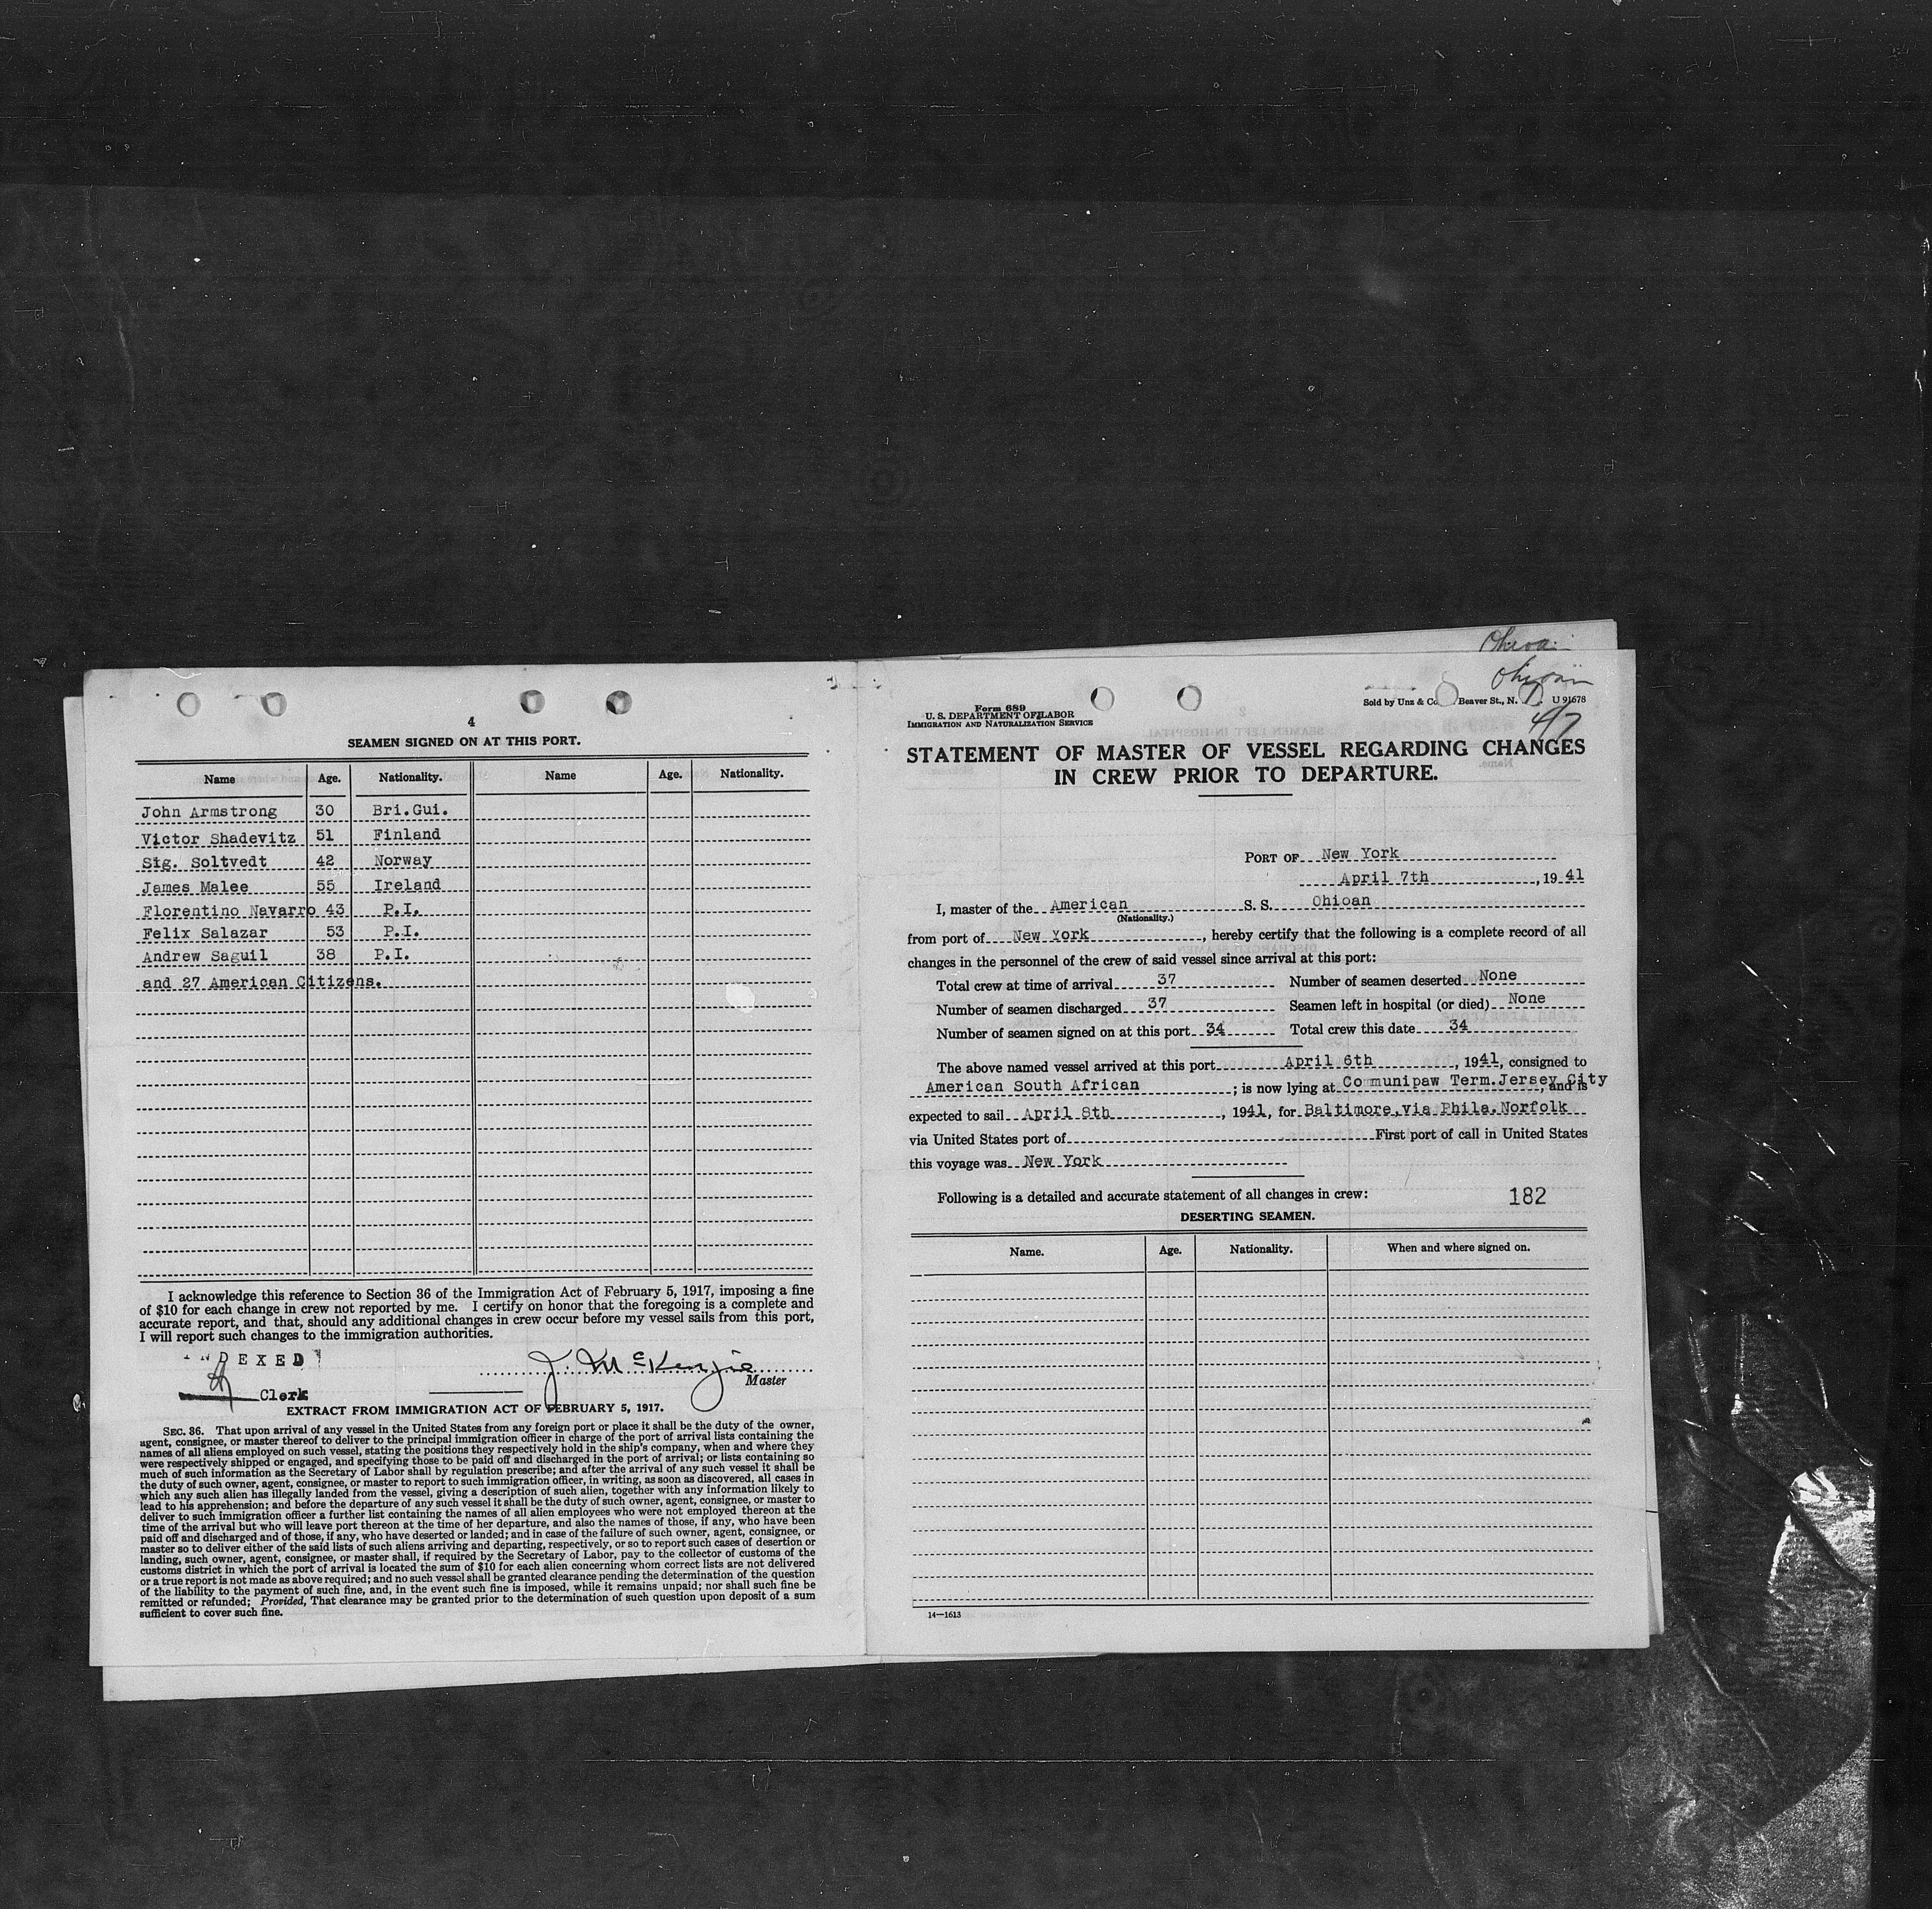 4
SEAMEN SIGNED ON AT THIS PORT.
Name Age. Nationality. Name Age. Nationality.
John Armstrong 30 Bri.Gui.
Victor Shadevitz 51 Finland
Sig. Soltvedt 42 Norway
James Malee 55 Ireland
Florentino Navarro 43 P.I.
Felix Salazar 53 P.I.
Andrew Saguil 38 P.I.
and 27 American Citizens.
I acknowledge this reference to Section 36 of the Immigration Act of February 5, 1917, imposing a fine
of $10 for each change in crew not reported by me. I certify on honor that the foregoing is a complete and
accurate report, and that, should any additional changes in crew occur before my vessel sails from this port,
I will report such changes to the immigration authorities.
INDEXED
J. McKenzie
Master
Clerk
EXTRACT FROM IMMIGRATION ACT OF FEBRUARY 5, 1917.
SEC. 36. That upon arrival of any vessel in the United States from any foreign port or place it shall be the duty of the owner,
agent, consignee, or master thereof to deliver to the principal immigration officer in charge of the port of arrival lists containing the
names of all aliens employed on such vessel, stating the positions they respectively hold in the ship's company, when and where they
were respectively shipped or engaged, and specifying those to be paid off and discharged in the port of arrival; or lists containing so
much of such information as the Secretary of Labor shall by regulation prescribe; and after the arrival of any such vessel it shall be
the duty of such owner, agent, consignee, or master to report to such immigration officer, in writing, as soon as discovered, all cases in
which any such alien has illegally landed from the vessel, giving a description of such alien, together with any information likely to
lead to his apprehension; and before the departure of any such vessel it shall be the duty of such owner, agent, consignee, or master to
deliver to such immigration officer a further list containing the names of all alien employees who were not employed thereon at the
time of the arrival but who will leave port thereon at the time of her departure, and also the names of those, if any, who have been
paid off and discharged and of those, if any, who have deserted or landed; and in case of the failure of such owner, agent, consignee, or
master so to deliver either of the said lists of such aliens arriving and departing, respectively, or so to report such cases of desertion or
landing, such owner, agent, consignee, or master shall, if required by the Secretary of Labor, pay to the collector of customs of the
customs district in which the port of arrival is located the sum of $10 for each alien concerning whom correct lists are not delivered
or a true report is not made as above required; and no such vessel shall be granted clearance pending the determination of the question
of the liability to the payment of such fine, and, in the event such fine is imposed, while it remains unpaid; nor shall such fine be
remitted or refunded; Provided, That clearance may be granted prior to the determination of such question upon deposit of a sum
sufficient to cover such fine.
Ohioan
4/7
Form 689
U. S. DEPARTMENT OF LABOR
IMMIGRATION AND NATURALIZATION SERVICE
Sold by Unz & Co. Beaver St., N. U 91678
STATEMENT OF MASTER OF VESSEL REGARDING CHANGES
IN CREW PRIOR TO DEPARTURE.
PORT OF New York
April 7th, 1941
I, master of the American S. S. Ohioan
(Nationality.)
from port of New York, hereby certify that the following is a complete record of all
changes in the personnel of the crew of said vessel since arrival at this port:
Total crew at time of arrival 37 Number of seamen deserted None
Number of seamen discharged 37 Seamen left in hospital (or died) None
Number of seamen signed on at this port 34 Total crew this date 34
The above named vessel arrived at this port April 6th, 1941, consigned to
American South African; is now lying at Co munipaw Term.Jersey City, and is
expected to sail April 8th, 1941, for Baltimore.via Phila.Norfolk
via United States port of First port of call in United States
this voyage was New York
Following is a detailed and accurate statement of all changes in crew: 182
DESERTING SEAMEN.
Name. Age. Nationality. When and where signed on.
14—1613